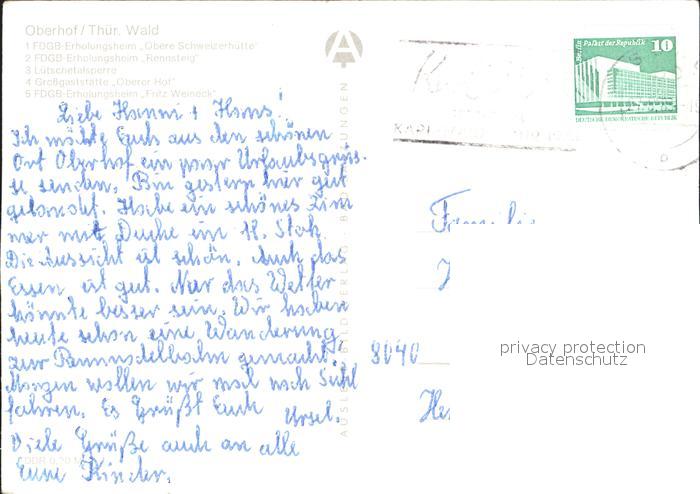 Oberhof / Thür. Wald
1 FDGB-Erholungsheim „Obere Schweizerhütte"
2 FDGB-Erholungsheim „Rennsteig"
3 Lütschetalsperre
4 Großgaststätte „Oberer Hof"
5 FDGB-Erholungsheim „Fritz Weineck"
Liebe Hanni + Hans!
Ich möchte Euch aus den schönen
Ort Oberhof ein paar Urlaubsgrüs-
se senden. Bin gestern hier gut
gelandet. Habe ein schönes Zim
mer mit Dusche im 12. Stck.
Die Aussicht ist schön. Auch das
Essen ist gut. Nur das Wetter
könnte besser sein. Wir haben
heute schon eine Wanderung
zur Rennrodelbahn gemacht.
Morgen wollen wir mal nach Suhl
fahren. Es Grüßt Euch
Ursel.
Viele Grüße auch an alle
Eure Kinder.
Berlin, Palast der Republik
10
DEUTSCHE DEMOKRATISCHE REPUBLIK
Familie
8040
privacy protection
Datenschutz